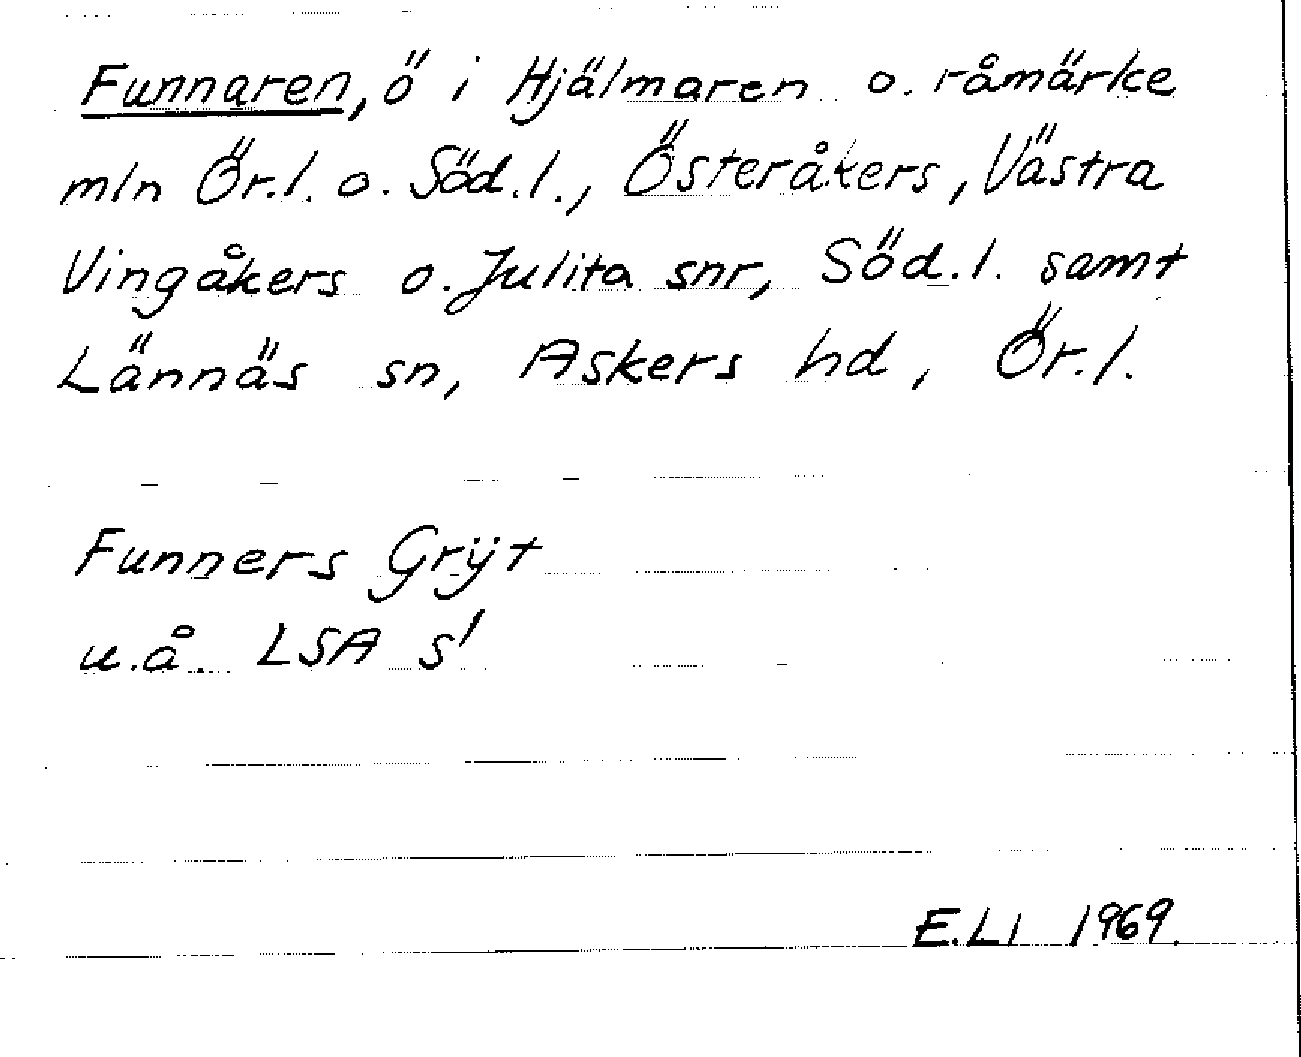 Funnaren, ö i Hjälmaren o. råmärke
mln Ör.l. o. Söd.l., Österåkers, Västra
Vingåkers o. Julita snr, Söd.l. samt
Lännäs sn, Askers hd, Ör.l.
Funners Grÿt
u.å. LSA s'
E.Ll 1969.